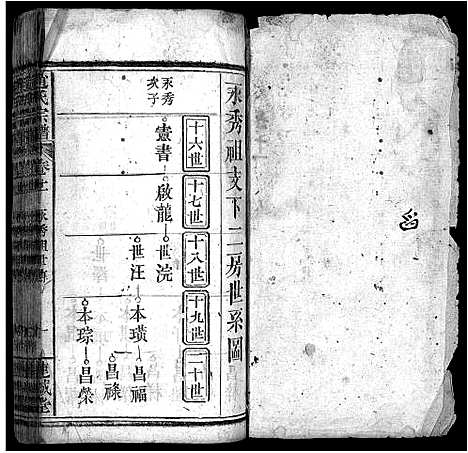 永秀祖支下二房世系圖
十六世
十七世
十八世
十九世
二十世
永秀
次子
靈書
啟龍
世浣
世汪
本璜
昌福
昌祿
本琮
昌榮
氏宗譜
永秀祖世傳